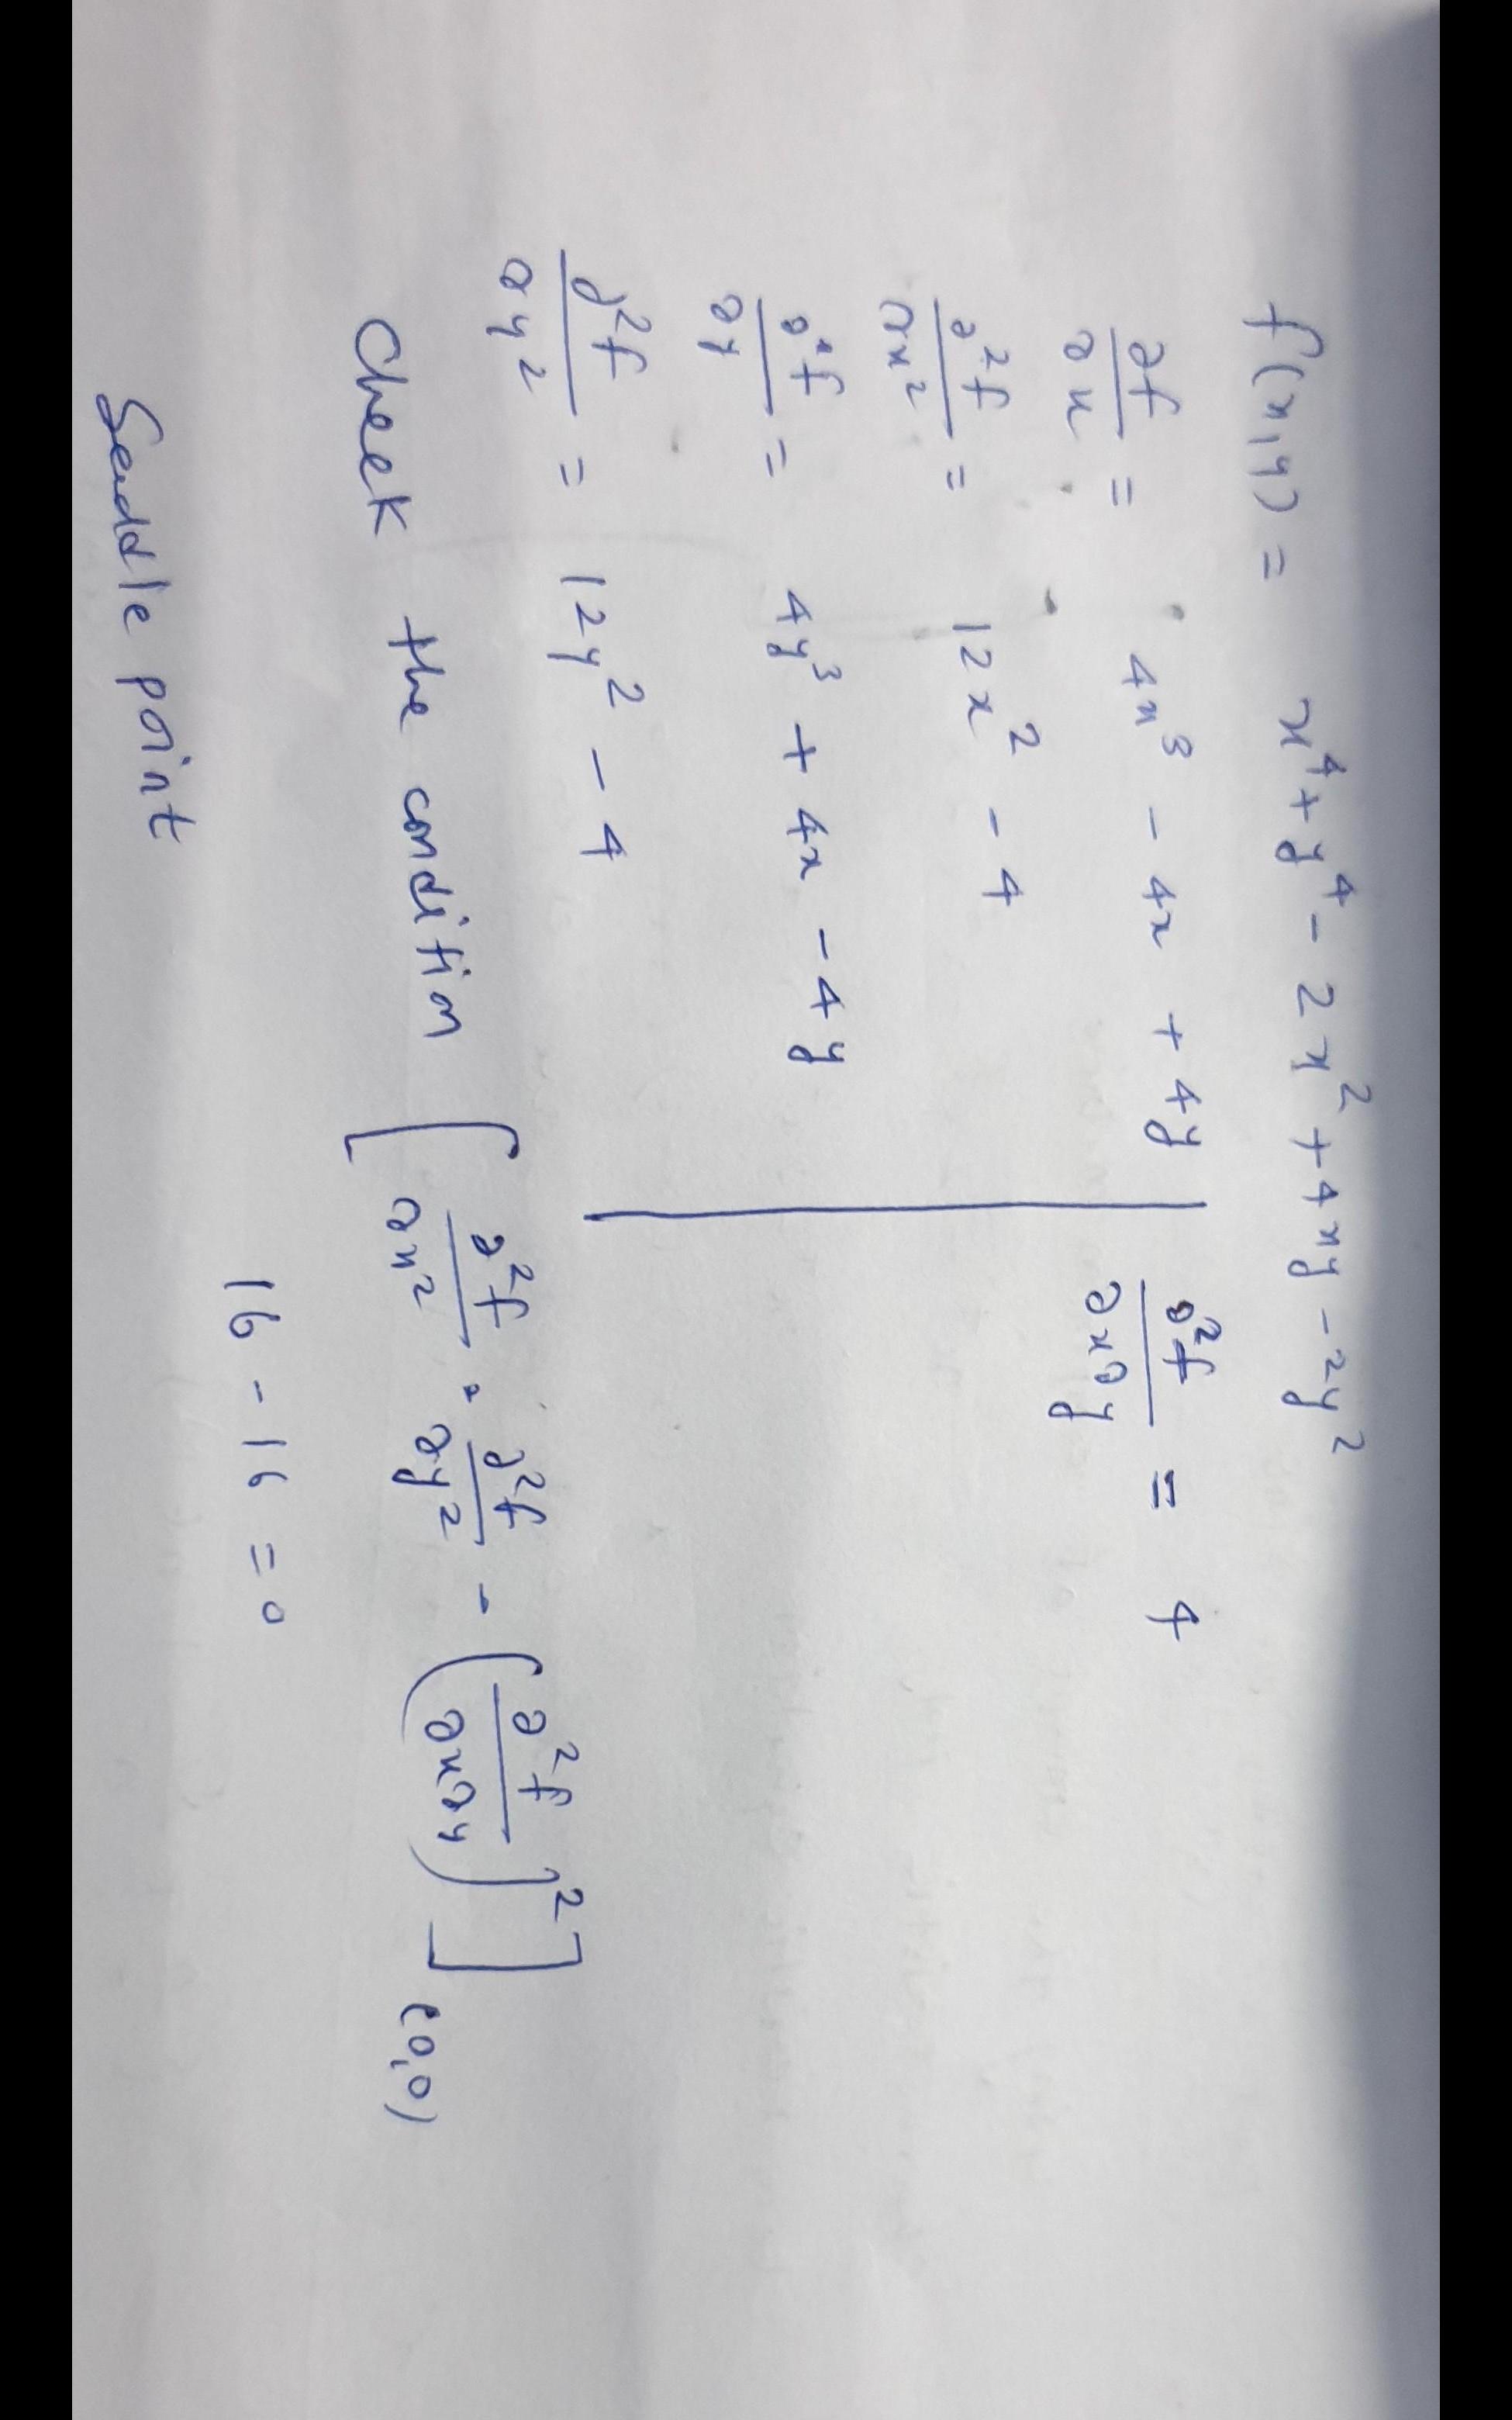 f(x,y) = x⁴+y⁴-2x²+4xy-2y²
∂f/∂x = 4x³ - 4x + 4y
∂²f/∂x∂y = 4
∂²f/∂x² = 12x² - 4
∂f/∂y = 4y³ + 4x - 4y
∂²f/∂y² = 12y² - 4
Check the condition [∂²f/∂x² · ∂²f/∂y² - (∂²f/∂x∂y)²] (0,0)
16 - 16 = 0
Saddle point